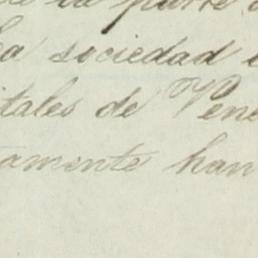 la parte
la sociedad
itales de Vene
amente han